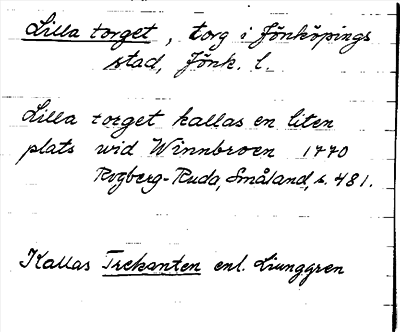 Lilla torget, torg i Jönköpings
stad, Jönk. l.
Lilla torget kallas en liten
plats wid Winnbroen 1770
Rogberg-Ruda, Småland, s. 481.
Kallas Trekanten enl. Ljunggren